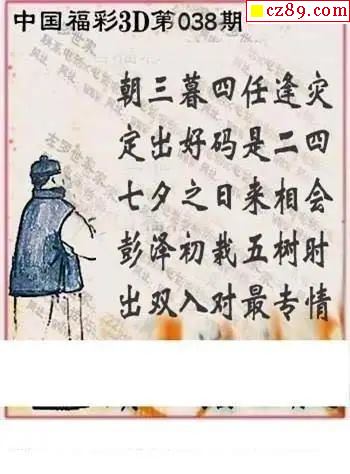 cz89.com
中国福彩3D第038期
朝三暮四任逢灾
定出好码是二四
七夕之日来相会
彭泽初栽五树时
出双入对最专情